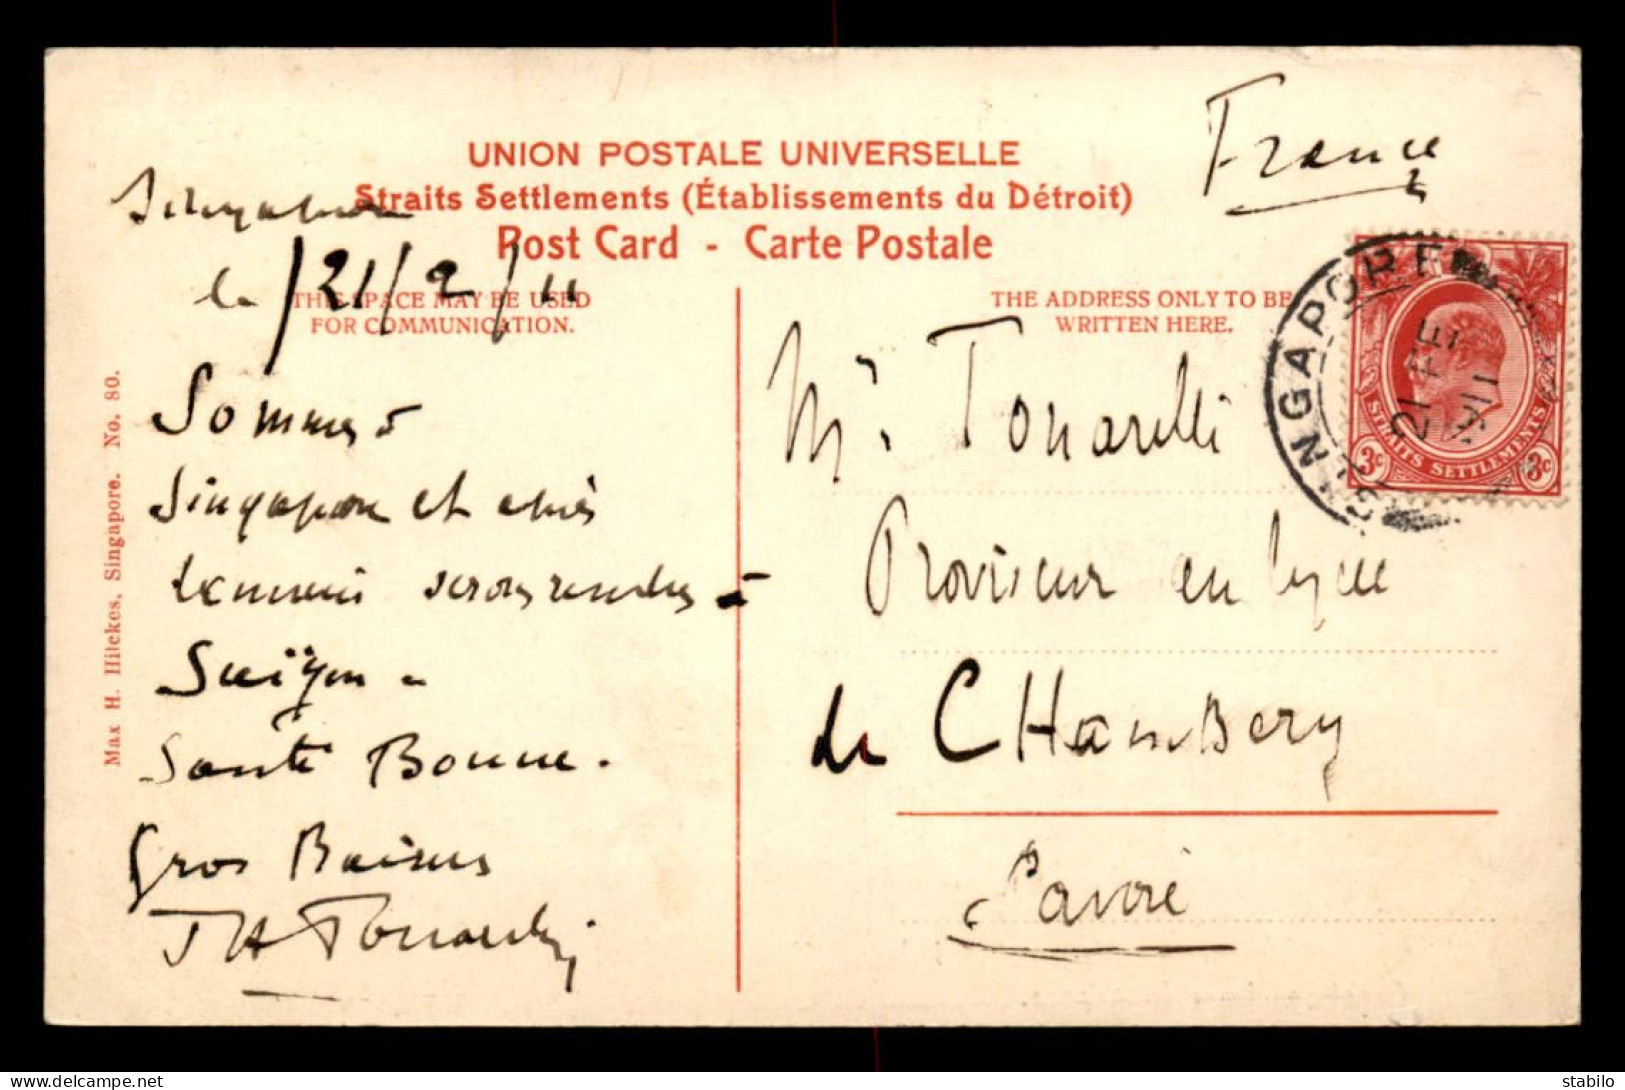 UNION POSTALE UNIVERSELLE
Straits Settlements (Établissements du Détroit)
Post Card - Carte Postale
France
Singapour
le 21/2/11
THIS SPACE MAY BE USED
FOR COMMUNICATION.
THE ADDRESS ONLY TO BE
WRITTEN HERE.
Sommes
Singapour et après
demain serons rendus
Saïgon -
Santé Bonne.
Gros Baisers
Mr Tonarelli
Proviseur au lycée
de CHamBery
Savoie
Max H. Hilckes, Singapore. No. 80.
SINGAPORE
21 FE
1911
STRAITS SETTLEMENTS
3c 3c
stabilo
delcampe.net